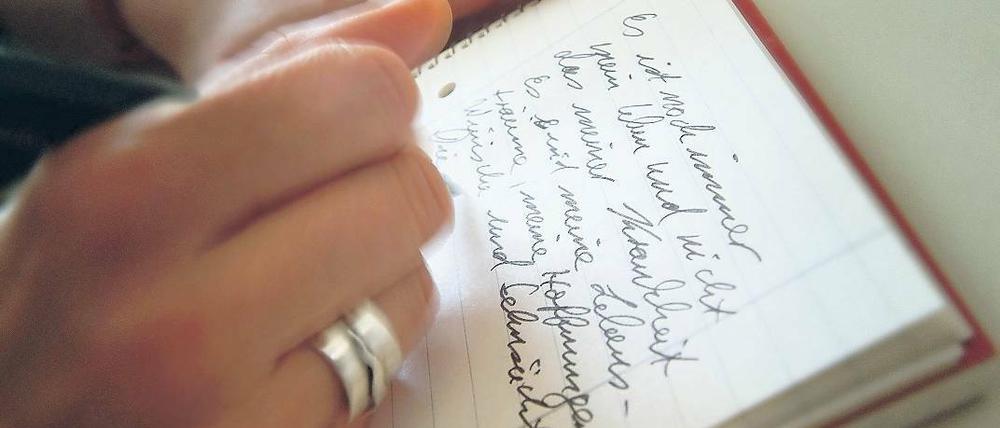 Es ist noch immer
mein Leben und nicht
das meiner Krankheit
Es sind meine Lebens-
träume, meine Hoffnungen
Wünsche und Sehnsücht
Die